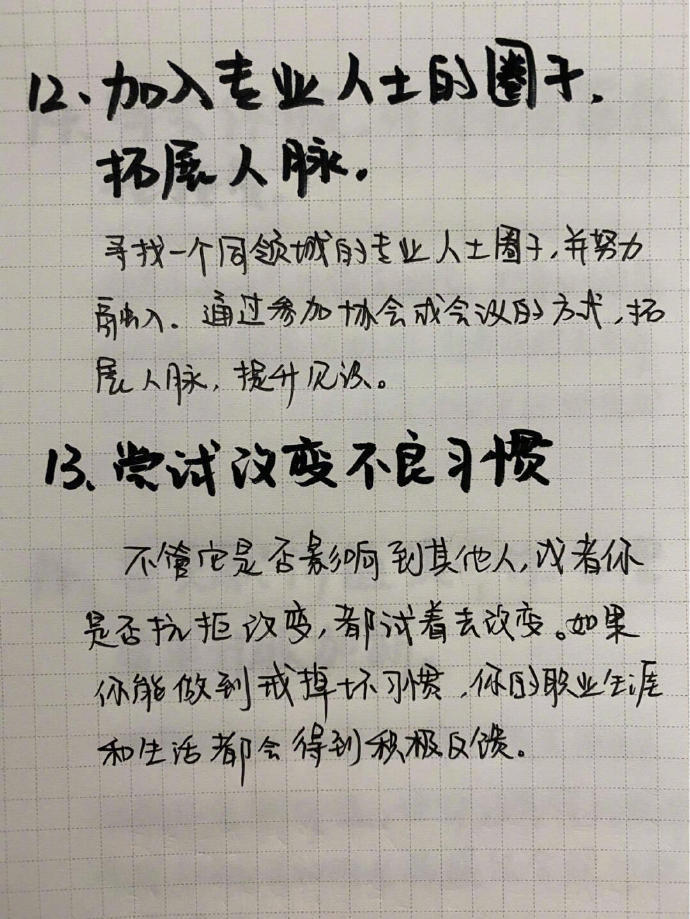 12、加入专业人士的圈子，
拓展人脉。
寻找一个同领域的专业人士圈子，并努力
融入。通过参加协会或会议的方式，拓
展人脉，提升见识。
13、尝试改变不良习惯
不管它是否影响到其他人，或者你
是否抗拒改变，都试着去改变。如果
你能做到戒掉坏习惯，你的职业生涯
和生活都会得到积极反馈。